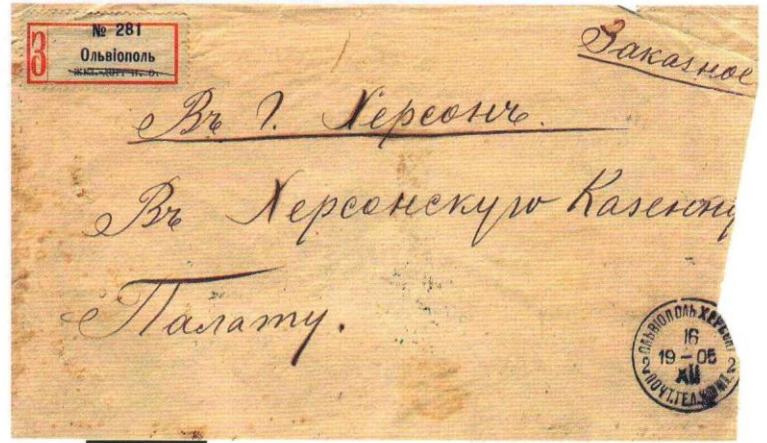 З
№ 281
Ольвіополь
Заказное
Въ г. Херсонъ.
Въ Херсонскую Казенну
Палату.
ОЛЬВІОПОЛЬ ХЕРСОН
16
19 – 05
XII
2 2
ПОЧТ. ТЕЛ.